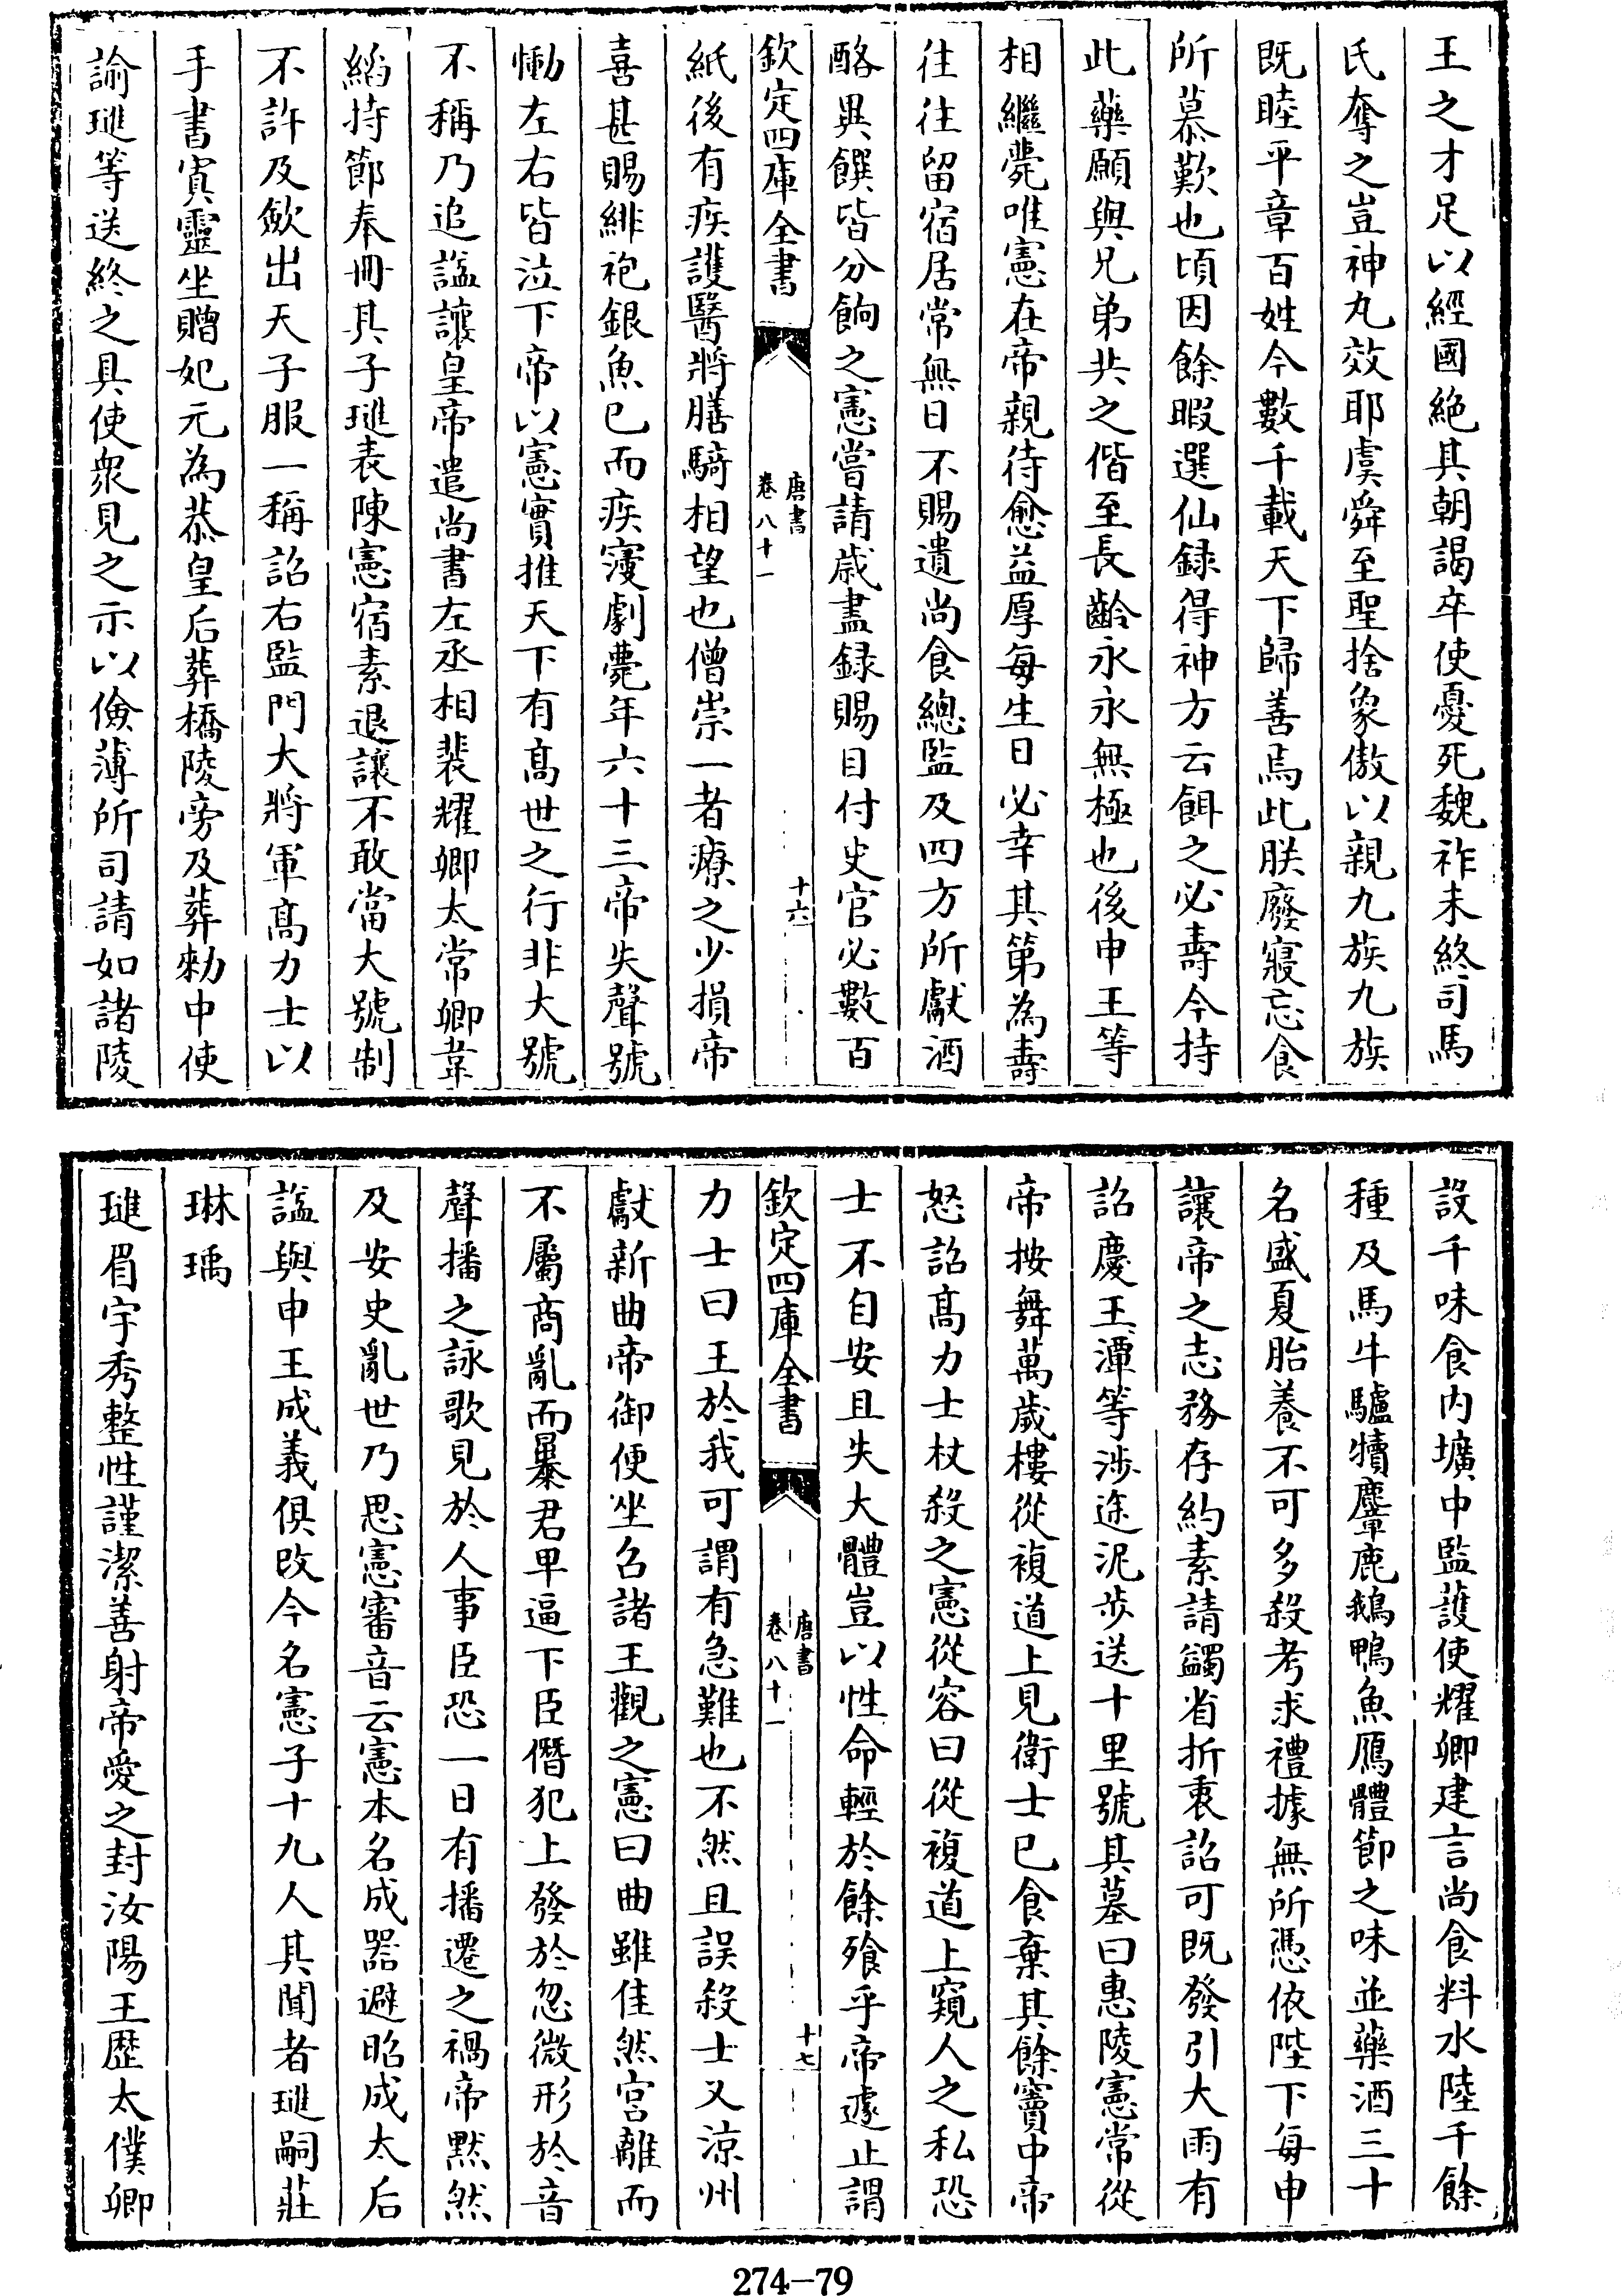 王之才足以經國絶其朝謁卒使憂死魏祚未終司馬
氏奪之豈神丸效耶虞舜至聖捨象傲以親九族九族
既睦平章百姓今數千載天下歸善焉此朕廢寢忘食
所慕歎也頃因餘暇選仙録得神方云餌之必壽今持
此藥願與兄弟共之偕至長齡永永無極也後申王等
相繼薨唯憲在帝親待愈益厚每生日必幸其第為壽
往往留宿居常無日不賜遺尚食總監及四方所獻酒
酪異饌皆分餉之憲嘗請歲盡録賜目付史官必數百
欽定四庫全書
唐書
卷八十一
十六
紙後有疾護醫將膳騎相望也僧崇一者療之少損帝
喜甚賜緋袍銀魚已而疾寖劇薨年六十三帝失聲號
慟左右皆泣下帝以憲實推天下有髙世之行非大號
不稱乃追諡讓皇帝遣尚書左丞相裴耀卿太常卿韋
縚持節奉冊其子璡表陳憲宿素退讓不敢當大號制
不許及斂出天子服一稱詔右監門大將軍髙力士以
手書寘靈坐贈妃元為恭皇后葬橋陵旁及葬勅中使
諭璡等送終之具使衆見之示以儉薄所司請如諸陵
設千味食内壙中監護使耀卿建言尚食料水陸千餘
種及馬牛驢犢麞鹿鵝鴨魚鴈體節之味並藥酒三十
名盛夏胎養不可多殺考求禮據無所憑依陛下每申
讓帝之志務存約素請蠲省折衷詔可既發引大雨有
詔慶王潭等涉途泥步送十里號其墓曰惠陵憲常從
帝按舞萬歲樓從複道上見衛士已食棄其餘竇中帝
怒詔髙力士杖殺之憲從容曰從複道上窺人之私恐
士不自安且失大體豈以性命輕於餘飱乎帝遽止謂
欽定四庫全書
唐書
卷八十一
十七
力士曰王於我可謂有急難也不然且誤殺士又涼州
獻新曲帝御便坐召諸王觀之憲曰曲雖佳然宫離而
不屬商亂而暴君卑逼下臣僭犯上發於忽微形於音
聲播之詠歌見於人事臣恐一日有播遷之禍帝黙然
及安史亂世乃思憲審音云憲本名成器避昭成太后
諡與申王成義俱改今名憲子十九人其聞者璡嗣莊
琳瑀
璡眉宇秀整性謹潔善射帝愛之封汝陽王歴太僕卿
274-79